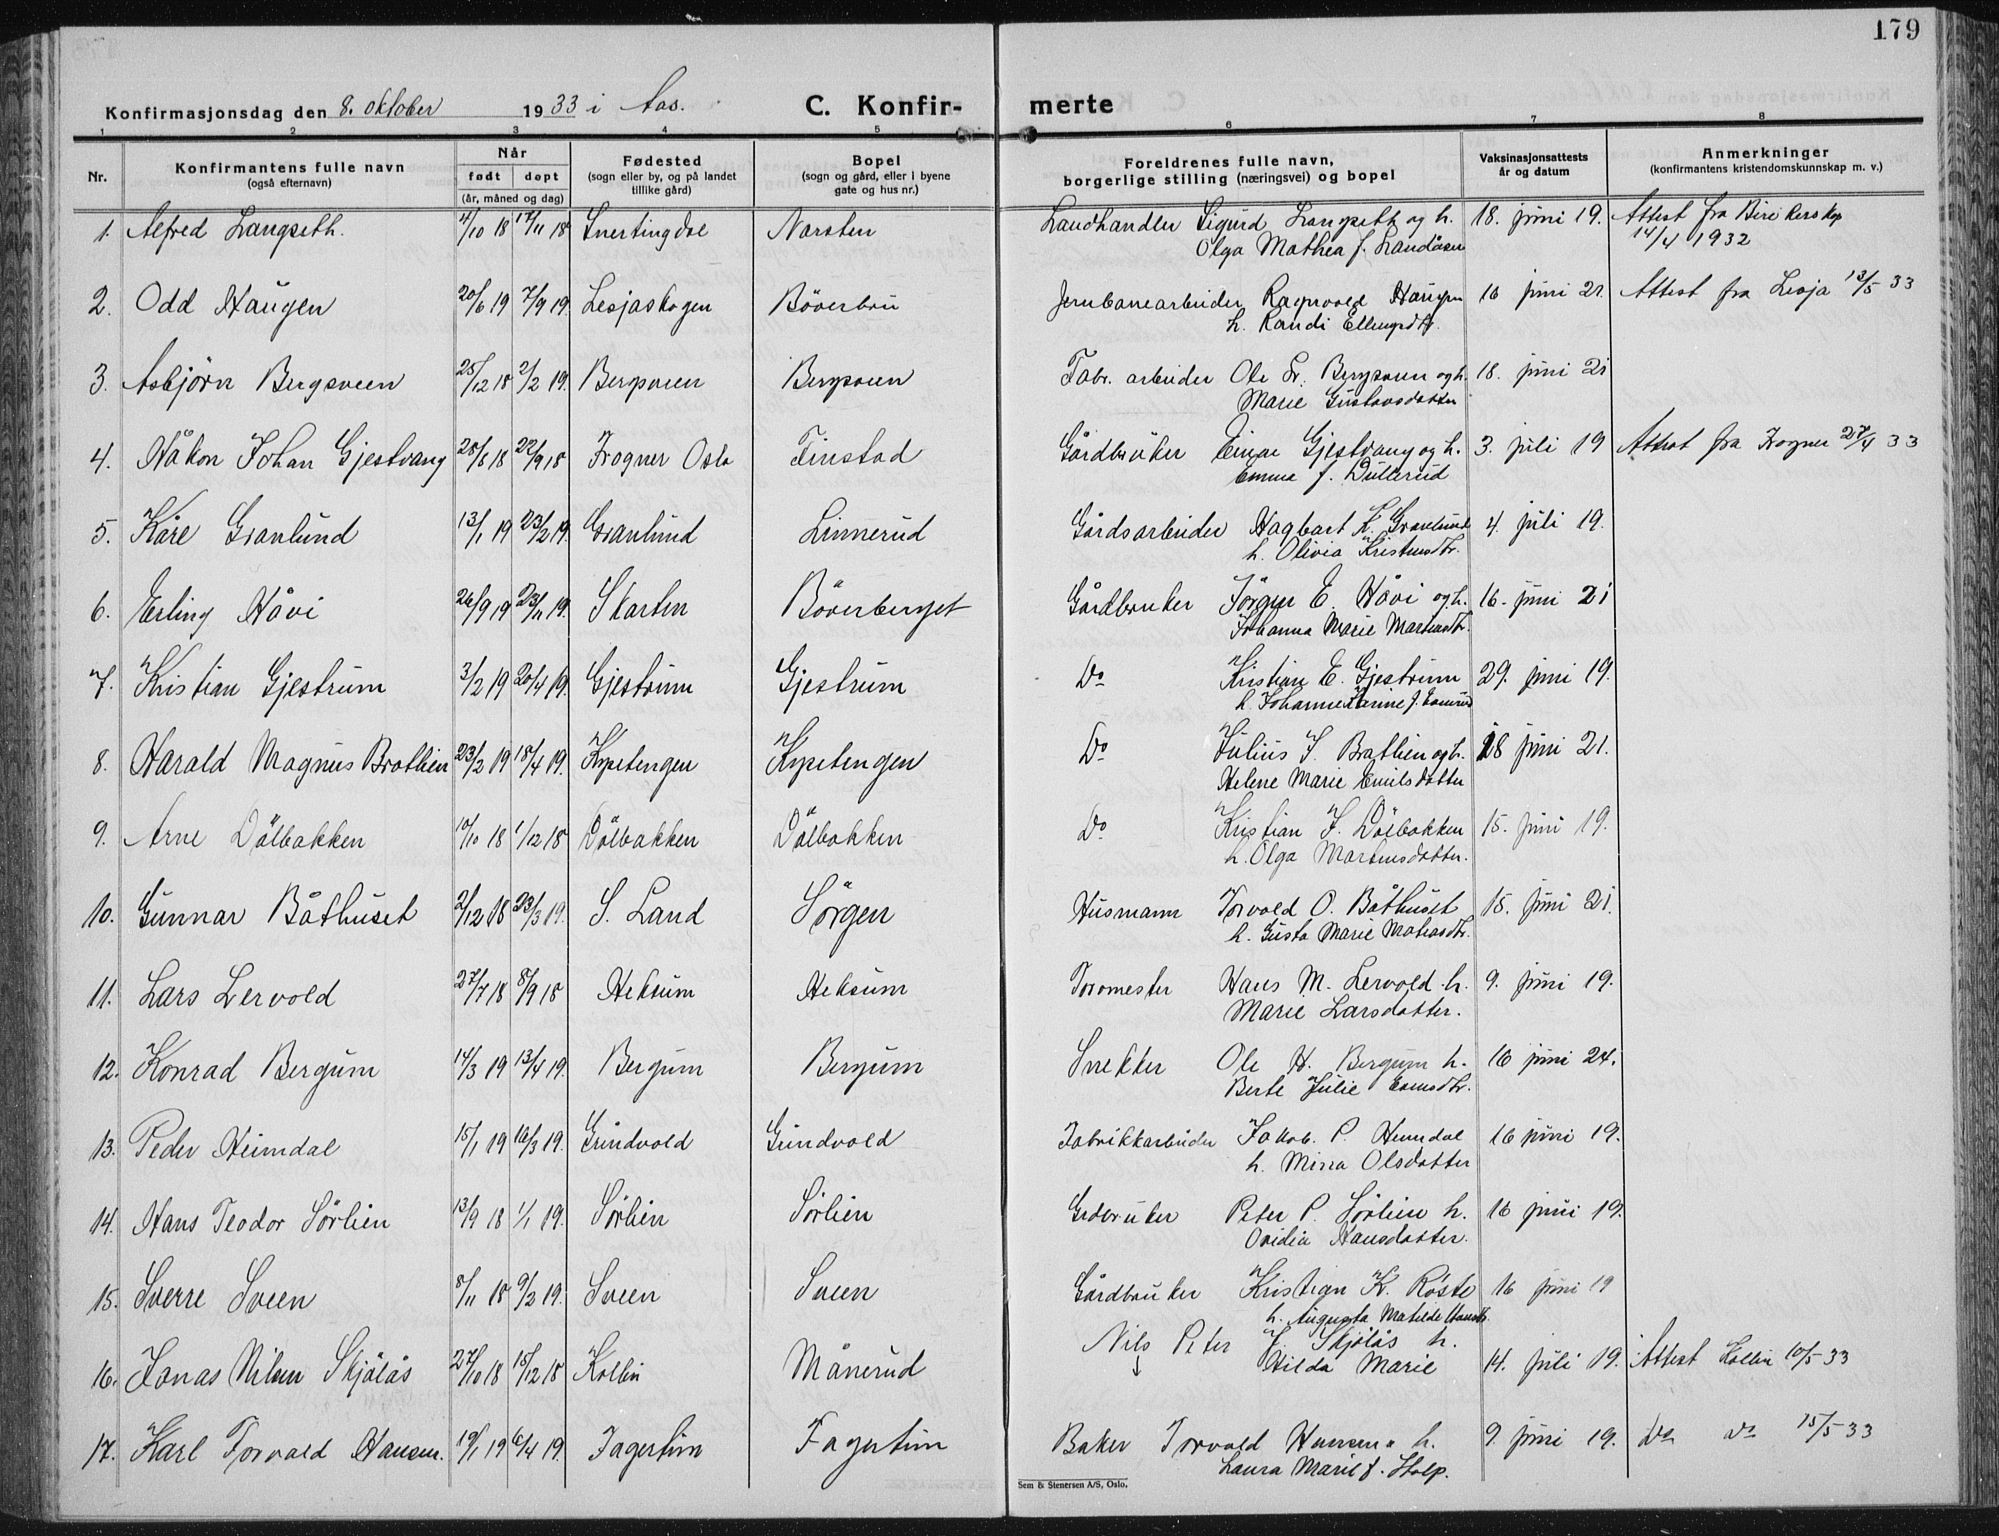 179
Konfirmasjonsdag den 8. oktober 1933 i Aas. C. Konfir- merte
1 2 3 4 5 6 7 8
Nr. Konfirmantens fulle navn (også efternavn) Når født døpt (år, måned og dag) Fødested (sogn eller by, og på landet tillike gård) Bopel (sogn og gård, eller i byene gate og hus nr.) Foreldrenes fulle navn, borgerlige stilling (næringsvei) og bopel Vaksinasjonsattests år og datum Anmerkninger (konfirmantens kristendomskunnskap m. v.)
1. Alfred Langseth. 4/10 18 17/11 18 Snertingdal Narsten Landhandler Sigurd Langseth og h. 18. juni 19. Attest fra Biri
Olga Mathea f. Landåsen 14/4 1932
2. Odd Haugen 20/6 19 7/9 19 Lesjaskogen Böverbru Jernbanearbeider Ragnvald Haugen 16 juni 21. Attest fra Lesja 13/5 33
h. Randi
3. Asbjörn Bergsveen 25/12 18 2/2 19. Bergsveen Bergsveen Fabr. arbeider Ole Bergsveen og h. 18. juni 21
Marie Gustavsdatter
4. Håkon Johan Gjestvang 28/8 18 22/9 18 Frogner Oslo Finstad Gårdbruker Einar Gjestvang og h. 3. juli 19 Attest fra Frogner 27/4 33
Emma f. Dullerud
5. Kåre Granlund 13/1 19 23/2 19. Granlund Linnerud Gårdsarbeider Hagbart L. Granlund 4. juli 19.
h. Olivia Kristensdtr.
6. Erling Håvi 26/9 19 23/11 19. Skarten Böverberget Gårdbruker Jörgen E. Håvi og h. 16. juni 21
Johanna Marie Martinsdtr.
7. Kristian Gjestrum 3/2 19 20/4 19. Gjestrum Gjestrum Do Kristian E. Gjestrum 29. juni 19.
h. Johanne Karine f.
8. Harald Magnus Brathien 23/2 19 18/4 19. Kopstengen Kopstengen Do Julius J. Brathien og h. 18 juni 21.
Helene Marie Emilsdatter
9. Arne Dölbakken 10/10 18 1/12 18 Dölbakken Dölbakken Do Kristian J. Dölbakken 15. juni 19.
h. Olga Martinsdatter.
10. Gunnar Båthuset 2/12 18 23/3 19. S. Land Sörgen Husmann Torvald O. Båthuset 15. juni 21.
h. Gusta Marie Matiasdtr.
11. Lars Lervold 27/7 18 8/9 18 Heksum Heksum Toromester Hans M. Lervold h. 9. juni 19.
Marie Larsdatter.
12. Konrad Bergum 14/3 19 13/4 19. Bergum Bergum Snekker Ole H. Bergum h. 16 juni 24.
Berte Julie
13. Peder Heimdal 15/1 19 16/3 19. Grindvold Grindvold Fabrikkarbeider Jakob. P. Heimdal 16 juni 19.
h. Mina Olsdatter
14. Hans Teodor Sörlien 13/9 18 1/1 19. Sörlien Sörlien Grdbruker Peter P. Sörlien h. 16 juni 19.
Ovidia Hansdatter.
15. Sverre Sveen 8/11 18 9/2 19. Sveen Sveen Gårdbruker Kristian K. Röste 16 juni 19
h. Augusta Matilde Hansdtr.
Nils Peter J. Skjölås h.
16. Jonas Nilsen Skjölås 27/10 18 15/12 18 Kolbu Månerud Hilda Marie 14. juli 19. Attest Kolbu 10/5 33
17. Karl Torvald Hansen. 19/1 19 6/4 19. Fagertun Fagertun Baker Torvald Hansen h. 9. juni 19. Do Do 15/5 33
Laura Marie f. Stolp.
Sem & Stenersen A/S, Oslo.